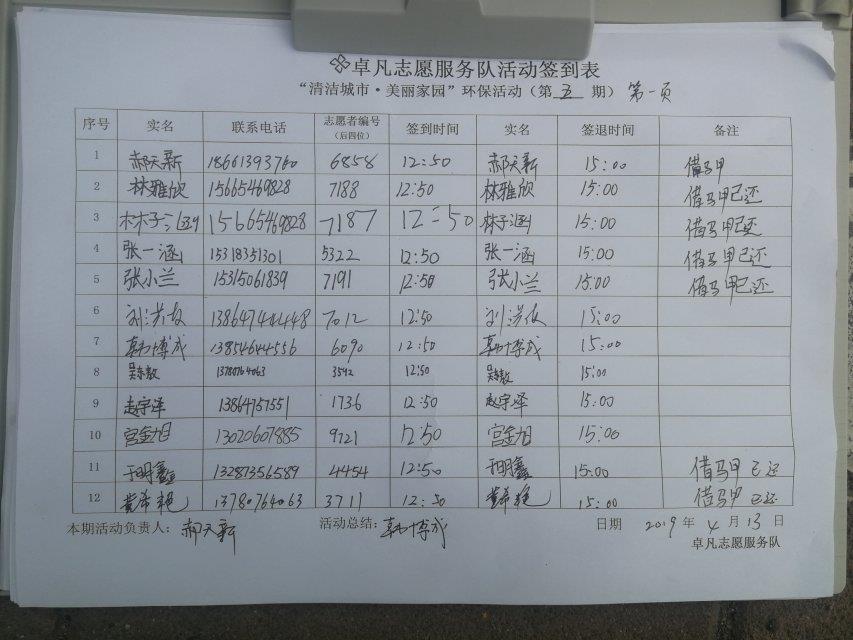 卓凡志愿服务队活动签到表
“清洁城市·美丽家园”环保活动（第五期） 第一页
序号 实名 联系电话 志愿者编号（后四位） 签到时间 实名 签退时间 备注
1 郝天新 18661393760 6858 12:50 郝天新 15:00 借马甲
2 林雅欣 15665469828 7188 12:50 林雅欣 15:00 借马甲已还
3 林子涵 15665469828 7187 12:50 林子涵 15:00 借马甲已还
4 张一涵 15318351301 5322 12:50 张一涵 15:00 借马甲已还
5 张小兰 15315061839 7191 12:50 张小兰 15:00 借马甲已还
6 刘 13864744448 7012 12:50 刘 15:00
7 韩博成 13854644556 6090 12:50 韩博成 15:00
8 13780764063 3542 12:50 15:00
9 赵宇泽 13864757551 1736 12:50 赵宇泽 15:00
10 宫金旭 13020607885 9721 12:50 宫金旭 15:00
11 于明鑫 13287356589 4454 12:50 于明鑫 15:00 借马甲 已还
12 黄希艳 13780764063 3711 12:50 黄希艳 15:00 借马甲 已还
本期活动负责人：郝天新 活动总结：韩博成 日期 2019年4月13日
卓凡志愿服务队